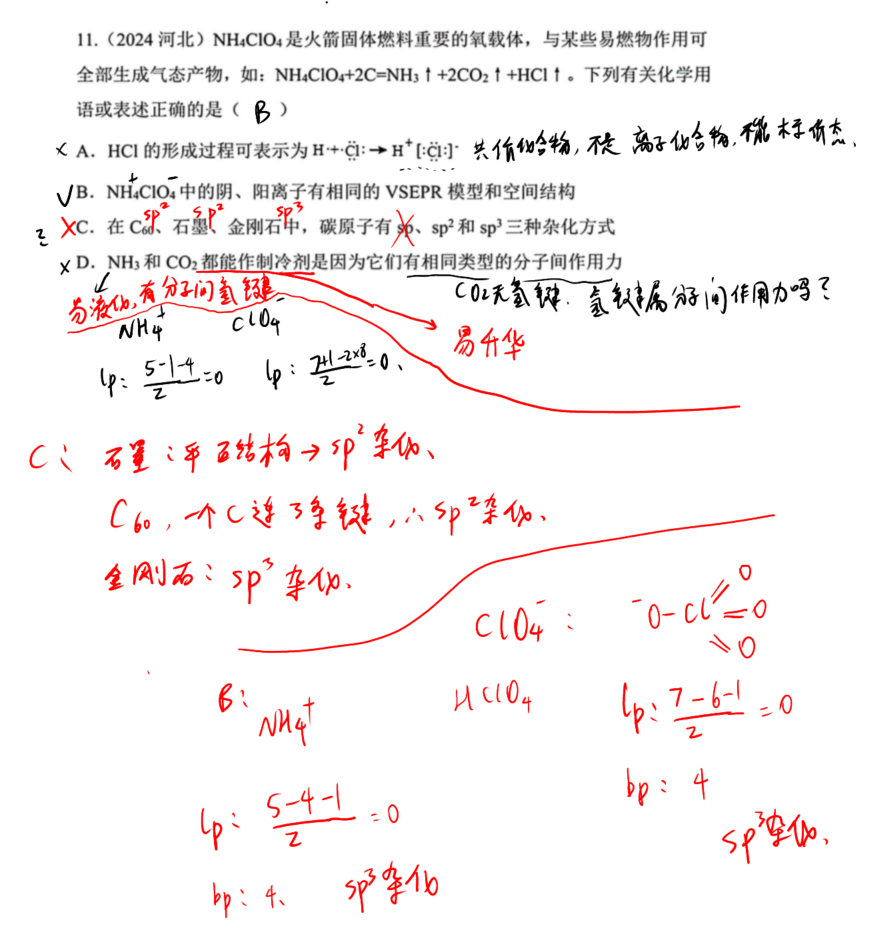 11.（2024 河北）NH₄ClO₄是火箭固体燃料重要的氧载体，与某些易燃物作用可
全部生成气态产物，如：NH₄ClO₄+2C=NH₃↑+2CO₂↑+HCl↑。下列有关化学用
语或表述正确的是（ B ）
× A．HCl 的形成过程可表示为 H·+·C̈l:→H⁺[:C̈l:]⁻ 共价化合物，不是离子化合物，
+ -
√ B．NH₄ClO₄中的阴、阳离子有相同的 VSEPR 模型和空间结构
sp² sp² sp³
? × C．在 C₆₀、石墨、金刚石中，碳原子有 sp、sp²和 sp³三种杂化方式
× D．NH₃和 CO₂都能作制冷剂是因为它们有相同类型的分子间作用力
易液化，有分子间氢键 CO₂无氢键．氢键属分子间作用力吗？
NH₄⁺ ClO₄⁻ 易升华
lp: (5-1-4)/2=0 lp: (7+1-2×8)/2=0、
C： 石墨：平面结构→sp²杂化、
C₆₀，一个C连3条键，∴sp²杂化、
金刚石：sp³杂化、
ClO₄⁻： ⁻O-Cl=O
O
O
B: NH₄⁺ HClO₄ lp: (7-6-1)/2=0
bp: 4
lp: (5-4-1)/2=0 sp³杂化、
bp: 4、 sp³杂化